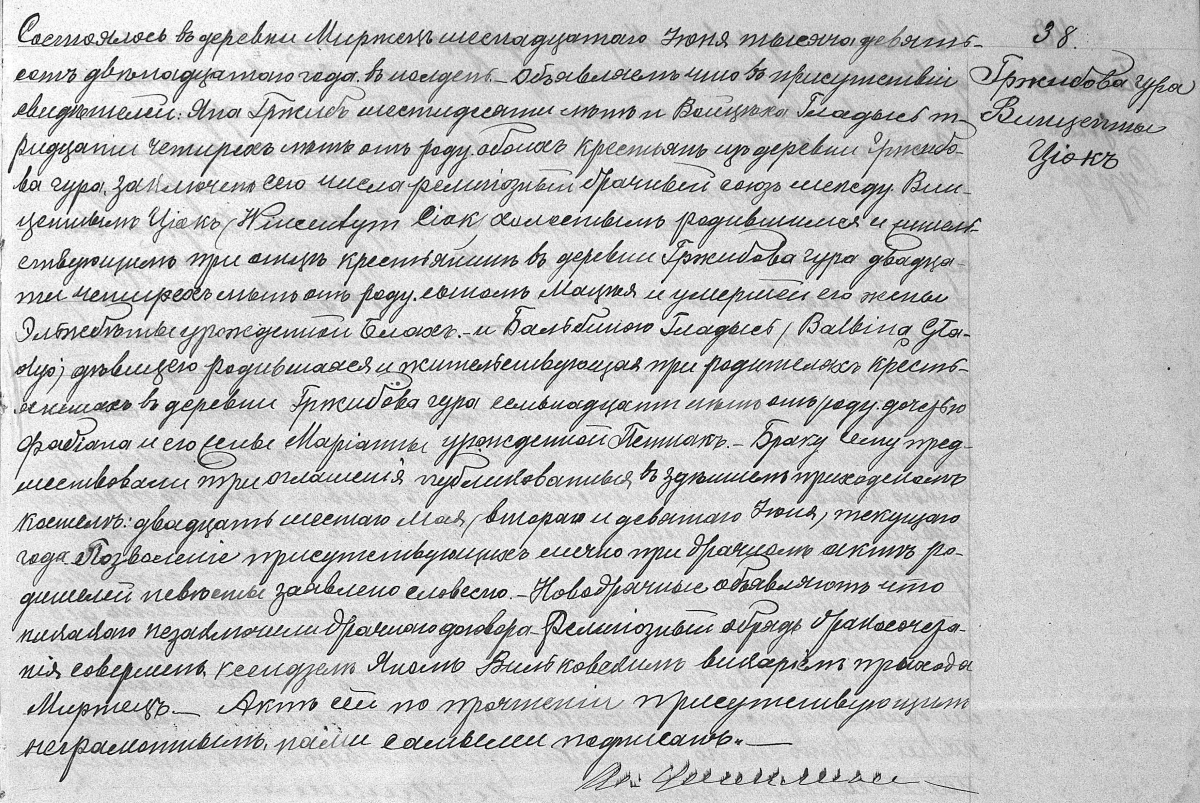 Состоялось въ деревни Миржецъ шестнадцатаго Іюня тысяча девять-
сотъ двѣнадцатаго года въ полдень. Объявляемъ что въ присутствіи
свидѣтелей: Яна Гржибъ шестидесяти лѣтъ и Войцѣха Гладысь т-
ридцати четырехъ лѣтъ отъ роду обоихъ крестьянъ изъ деревни Гржибо-
ва гура, заключенъ сего числа религіозный брачный союзъ между Вин-
центымъ Ціокъ /Wincentym Ciok/ холостымъ родившимся и житель-
ствующимъ при отцѣ крестьянинѣ въ деревни Гржибова гура двадца-
ти четырехъ лѣтъ отъ роду, сыномъ Мацѣя и умершей его жены
Эльжбѣты урожденной Блахъ. - и Бальбиною Гладысь /Balbina Gła-
dyś/ дѣвицею родившаяся и жительствующая при родителяхъ кресть-
янахъ въ деревни Гржибова гура семьнадцати лѣтъ отъ роду дочерью
Фабіана и его жены Маріанны урожденной Петлакъ. - Браку сему пред-
шествовали три оглашенія публикованныя въ здѣшнемъ приходскомъ
костелѣ: двадцать шестаго Мая, втораго и девятаго Іюня, текущаго
года. Позволеніе присутствующихъ лично при брачномъ актѣ ро-
дителей невѣсты заявлено словесно. - Новобрачные объявляютъ что
никакого незаключили брачнаго договора. Религіозный обрядъ бракосочета-
нія совершенъ ксендземъ Яномъ Вильковскимъ викаріемъ прихода
Миржецъ. - Актъ сей по прочтеніи присутствующимъ
неграмотнымъ, нами самыми подписанъ. -
38.
Гржибова гура
Винценты
Ціокъ